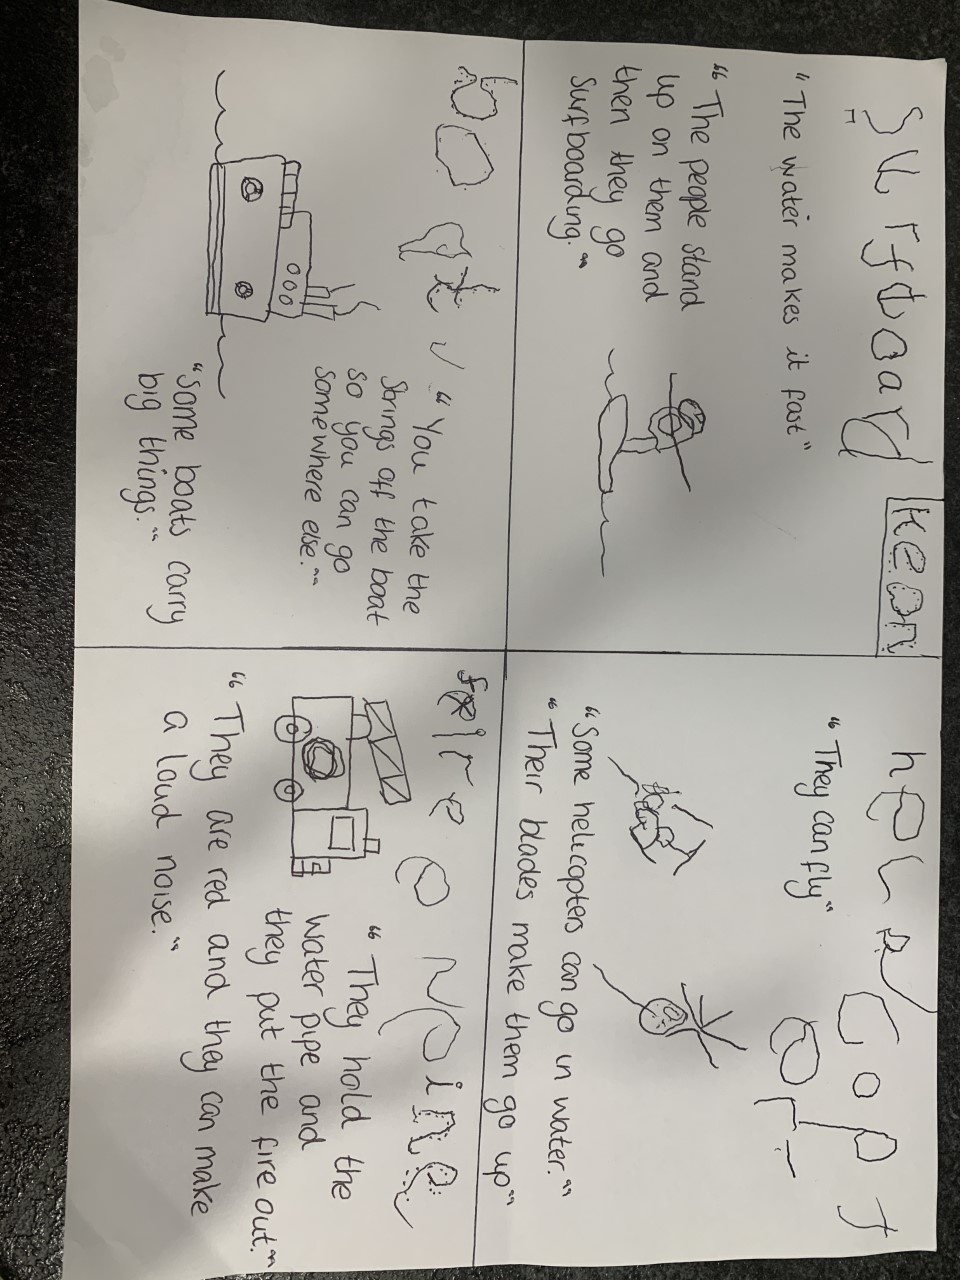 surfboard
Kean
"The water makes it fast"
"The people stand
up on them and
then they go
surfboarding."
helicopt
er
"They can fly"
"Some helicopters can go in water."
"Their blades make them go up"
boat
"You take the
strings off the boat
so you can go
somewhere else."
"some boats carry
big things."
fire engine
"They hold the
water pipe and
they put the fire out."
"They are red and they can make
a loud noise."